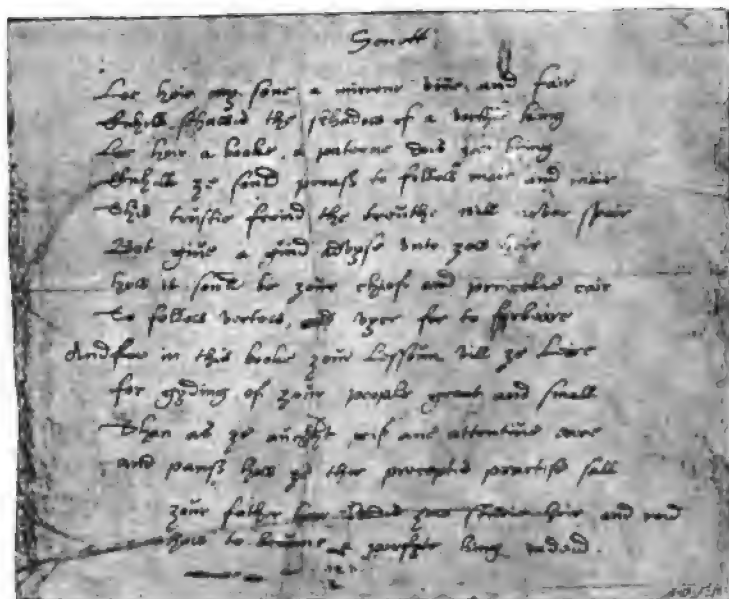 Sonett
Loe heir my sone a mirroure viue and fair
Quhilk schawis the schadow of a vorthie king
Loe heir a booke, a paterne dois zou bring
Quhilk ze sould preass to follow mair and mair
This trustie freind the treuthe will never spair
Bot giue a guid aduyse unto zou heir
how it sould be zoure chief and princelie cair
To follow vertew, vyce for to forbeare
And in this booke zour lessoun vill ze leire
for gyding of zour people great and small
Than as ze aucht gif ane attentiue eare
and panse how ze thir preceptis practise sall
zour father biddis zou studie heir and reid
how to become a perfyte king indeid.